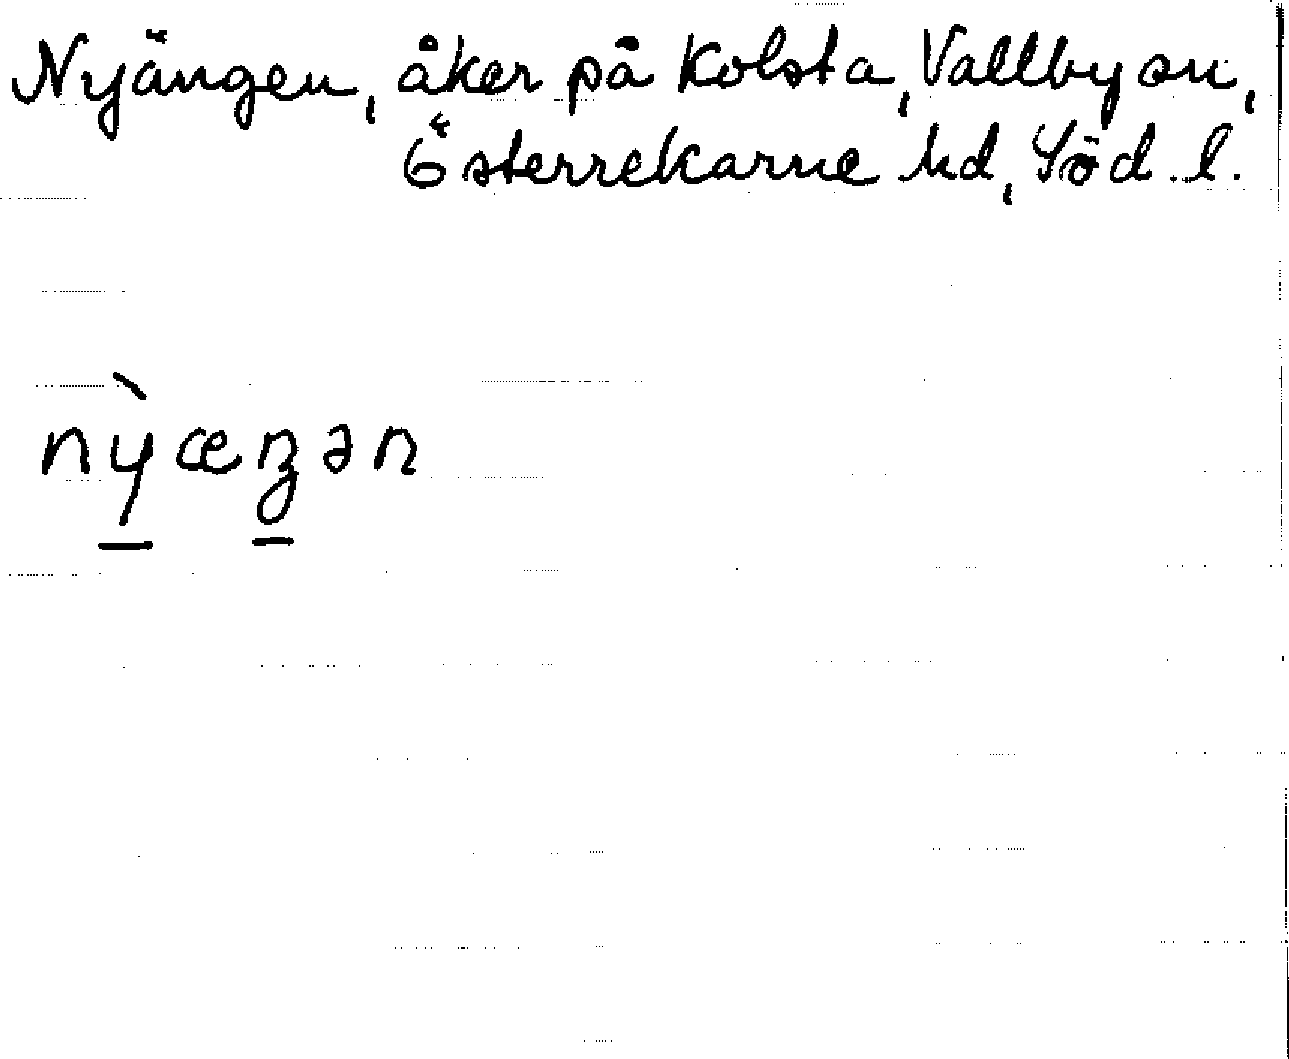 Nyängen, åker på Kolsta, Vallby sn,
Österrekarne hd, Söd. l.
nỳæŋən